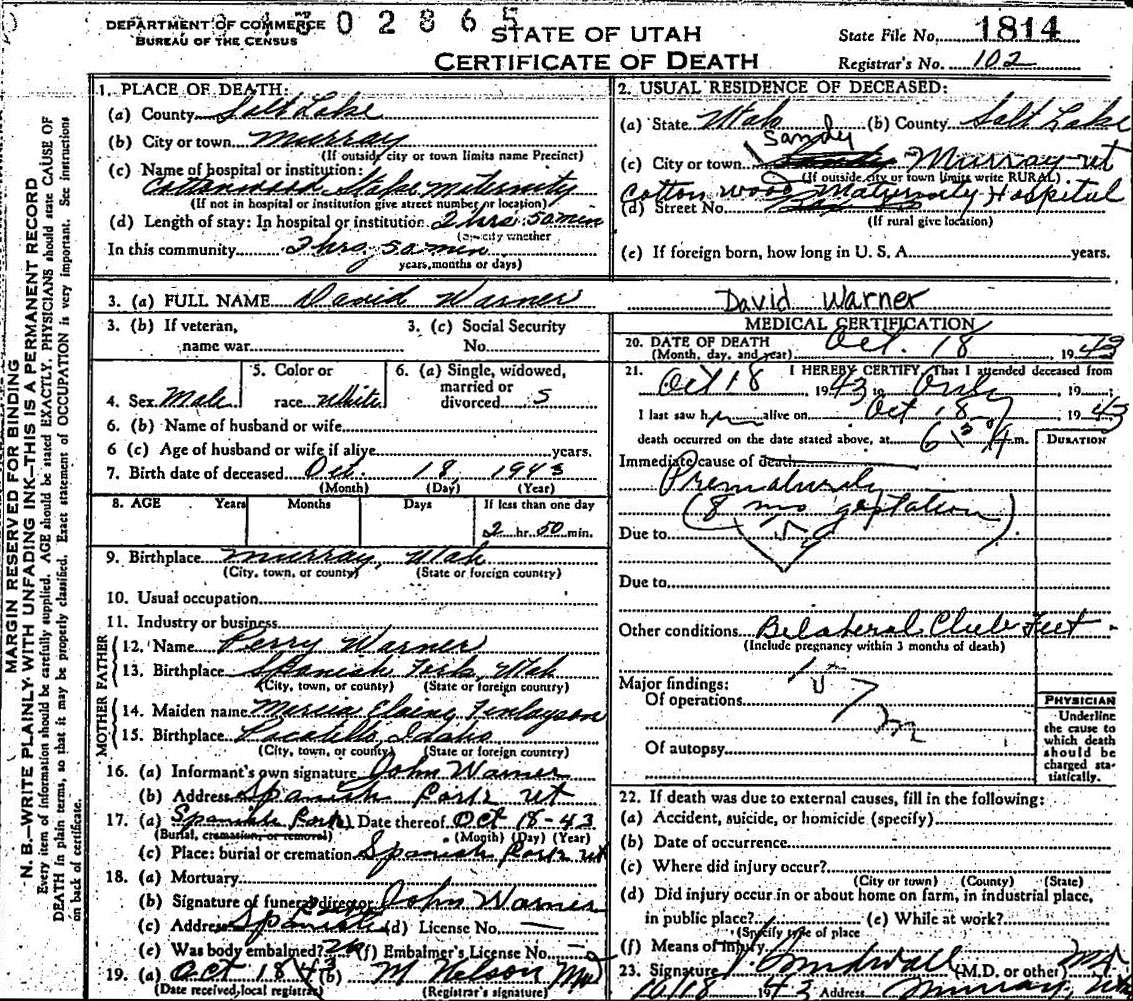 DEPARTMENT OF COMMERCE
BUREAU OF THE CENSUS
302865
STATE OF UTAH
CERTIFICATE OF DEATH
State File No. 1814
Registrar's No. 102
MARGIN RESERVED FOR BINDING
N. B.—WRITE PLAINLY WITH UNFADING INK—THIS IS A PERMANENT RECORD
Every item of information should be carefully supplied. AGE should be stated EXACTLY. PHYSICIANS should state CAUSE OF
DEATH in plain terms, so that it may be properly classified. Exact statement of OCCUPATION is very important. See instructions
on back of certificate.
1. PLACE OF DEATH:
(a) County Salt Lake
(b) City or town Murray
(If outside city or town limits name Precinct)
(c) Name of hospital or institution:
Cottonwood Stake Maternity
(If not in hospital or institution give street number or location)
(d) Length of stay: In hospital or institution 2 hrs 50 min
(Specify whether
In this community 2 hrs. 50 min
years, months or days)
2. USUAL RESIDENCE OF DECEASED:
(a) State Utah (b) County Salt Lake
Sandy
(c) City or town Murray ut
(If outside city or town limits write RURAL)
Cottonwood Maternity Hospital
(d) Street No.
(If rural give location)
(e) If foreign born, how long in U. S. A. years.
3. (a) FULL NAME David Warner
David Warner
3. (b) If veteran, name war
3. (c) Social Security No.
4. Sex Male
5. Color or race White
6. (a) Single, widowed, married or divorced S
6. (b) Name of husband or wife
6 (c) Age of husband or wife if alive years.
7. Birth date of deceased Oct. 18, 1943
(Month) (Day) (Year)
8. AGE Years Months Days If less than one day
2 hr. 50 min.
9. Birthplace Murray, Utah
(City, town, or county) (State or foreign country)
10. Usual occupation
11. Industry or business
FATHER
12. Name Perry Warner
13. Birthplace Spanish Fork, Utah
(City, town, or county) (State or foreign country)
MOTHER
14. Maiden name Mercia Elaine Finlayson
15. Birthplace Pocatello, Idaho
(City, town, or county) (State or foreign country)
16. (a) Informant's own signature John Warner
(b) Address Spanish Fork ut
17. (a) Spanish Fork Date thereof Oct 18-43
(Burial, cremation or removal) (Month) (Day) (Year)
(c) Place: burial or cremation Spanish Fork ut
18. (a) Mortuary
(b) Signature of funeral director John Warner
(c) Address Spanish (d) License No. —
(e) Was body embalmed? no (f) Embalmer's License No. —
19. (a) Oct 18 43 (b) M Nelson MD
(Date received, local registrar) (Registrar's signature)
MEDICAL CERTIFICATION
20. DATE OF DEATH Oct. 18, 1943
(Month, day, and year)
21. I HEREBY CERTIFY, That I attended deceased from
Oct 18 1943 to Only, 19
I last saw him alive on Oct 18, 1943
death occurred on the date stated above, at 6 30 A m.
DURATION
Immediate cause of death
Prematurity
(8 mo gestation)
Due to
Due to
Other conditions Bilateral Club Feet
(Include pregnancy within 3 months of death)
Major findings:
Of operations
Of autopsy
PHYSICIAN
Underline
the cause to
which death
should be
charged sta-
tistically.
22. If death was due to external causes, fill in the following:
(a) Accident, suicide, or homicide (specify)
(b) Date of occurrence
(c) Where did injury occur?
(City or town) (County) (State)
(d) Did injury occur in or about home on farm, in industrial place,
in public place? (e) While at work?
(Specify type of place
(f) Means of injury
23. Signature (M.D. or other) MD
10/18 1943 Address Murray, Utah